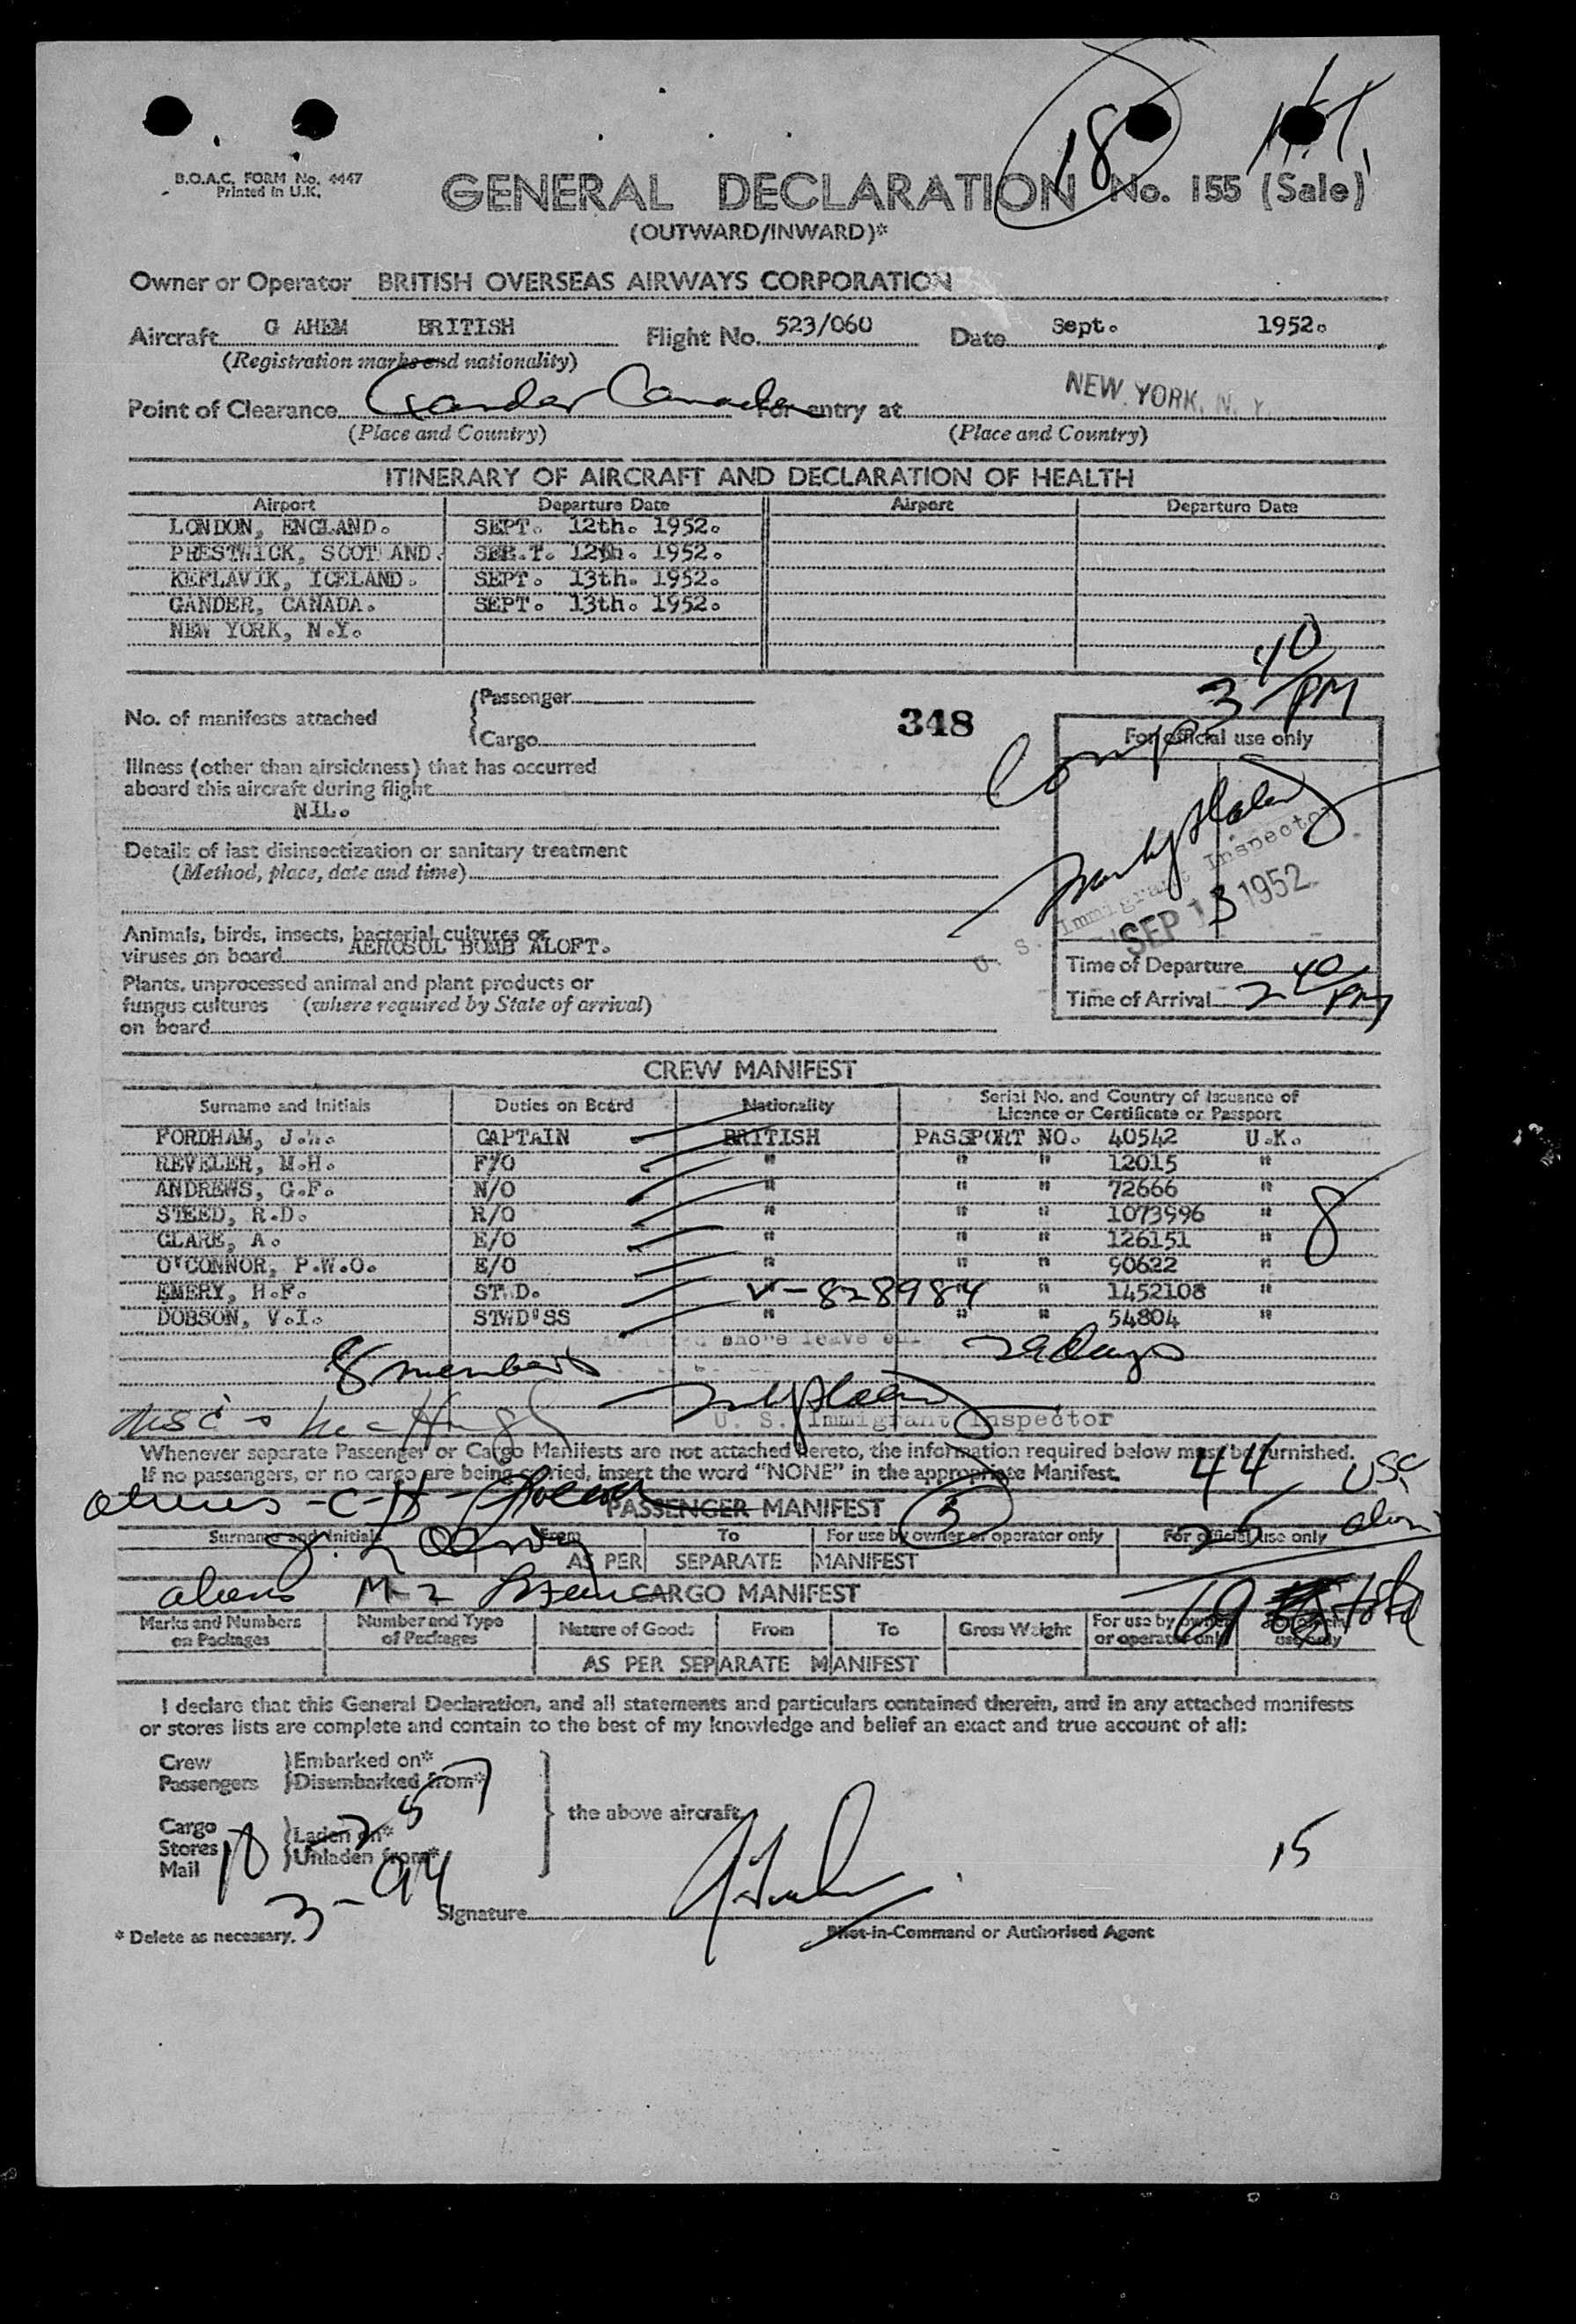 18
B.O.A.C. FORM No. 4447
Printed in U.K.
GENERAL DECLARATION No. 155 (Sale)
(OUTWARD/INWARD)*
Owner or Operator BRITISH OVERSEAS AIRWAYS CORPORATION
Aircraft G AHEM BRITISH Flight No. 523/060 Date Sept. 1952.
(Registration marks and nationality)
Point of Clearance Gander Canada For entry at NEW YORK, N. Y.
(Place and Country) (Place and Country)
ITINERARY OF AIRCRAFT AND DECLARATION OF HEALTH
Airport Departure Date Airport Departure Date
LONDON, ENGLAND. SEPT. 12th. 1952.
PRESTWICK, SCOT AND. SEP.T. 12th. 1952.
KEFLAVIK, ICELAND. SEPT. 13th. 1952.
GANDER, CANADA. SEPT. 13th. 1952.
NEW YORK, N.Y.
3 40 PM
No. of manifests attached
Passenger
Cargo
348
Comp
For official use only
Illness (other than airsickness) that has occurred
aboard this aircraft during flight
NIL.
Details of last disinsectization or sanitary treatment
(Method, place, date and time)
U. S. Immigrant Inspector
SEP 13 1952
Animals, birds, insects, bacterial cultures or
viruses on board AEROSOL BOMB ALOFT.
Time of Departure
Plants, unprocessed animal and plant products or
fungus cultures (where required by State of arrival)
on board
Time of Arrival 2 40 PM
CREW MANIFEST
Surname and Initials Duties on Board Nationality Serial No. and Country of Issuance of
Licence or Certificate or Passport
FORDHAM, J.W. CAPTAIN BRITISH PASSPORT NO. 40542 U.K.
REVELER, M.H. F/O " " " 12015 "
ANDREWS, G.F. N/O " " " 72666 "
STEED, R.D. R/O " " " 1073996 "
CLARE, A. E/O " " " 126151 "
O'CONNOR, P.W.O. E/O " " " 90622 "
EMERY, H.F. ST.D. V-828984 " 1452108 "
DOBSON, V.I. STWD'SS " " " 54804 "
8
shore leave
8 members 29 days
U. S. Immigrant Inspector
Whenever separate Passenger or Cargo Manifests are not attached hereto, the information required below must be furnished.
If no passengers, or no cargo are being carried, insert the word "NONE" in the appropriate Manifest.
44 USC
PASSENGER MANIFEST
3
25 aliens
Surname and Initials From To For use by owner or operator only For official use only
AS PER SEPARATE MANIFEST
aliens M-Z
CARGO MANIFEST
69 total
Marks and Numbers on Packages Number and Type of Packages Nature of Goods From To Gross Weight For use by owner or operator only
AS PER SEPARATE MANIFEST
I declare that this General Declaration, and all statements and particulars contained therein, and in any attached manifests
or stores lists are complete and contain to the best of my knowledge and belief an exact and true account of all:
Crew Embarked on*
Passengers Disembarked from*
the above aircraft
Cargo Laden on*
Stores Unladen from*
Mail
15
3-94
Signature
* Delete as necessary.
Pilot-in-Command or Authorised Agent